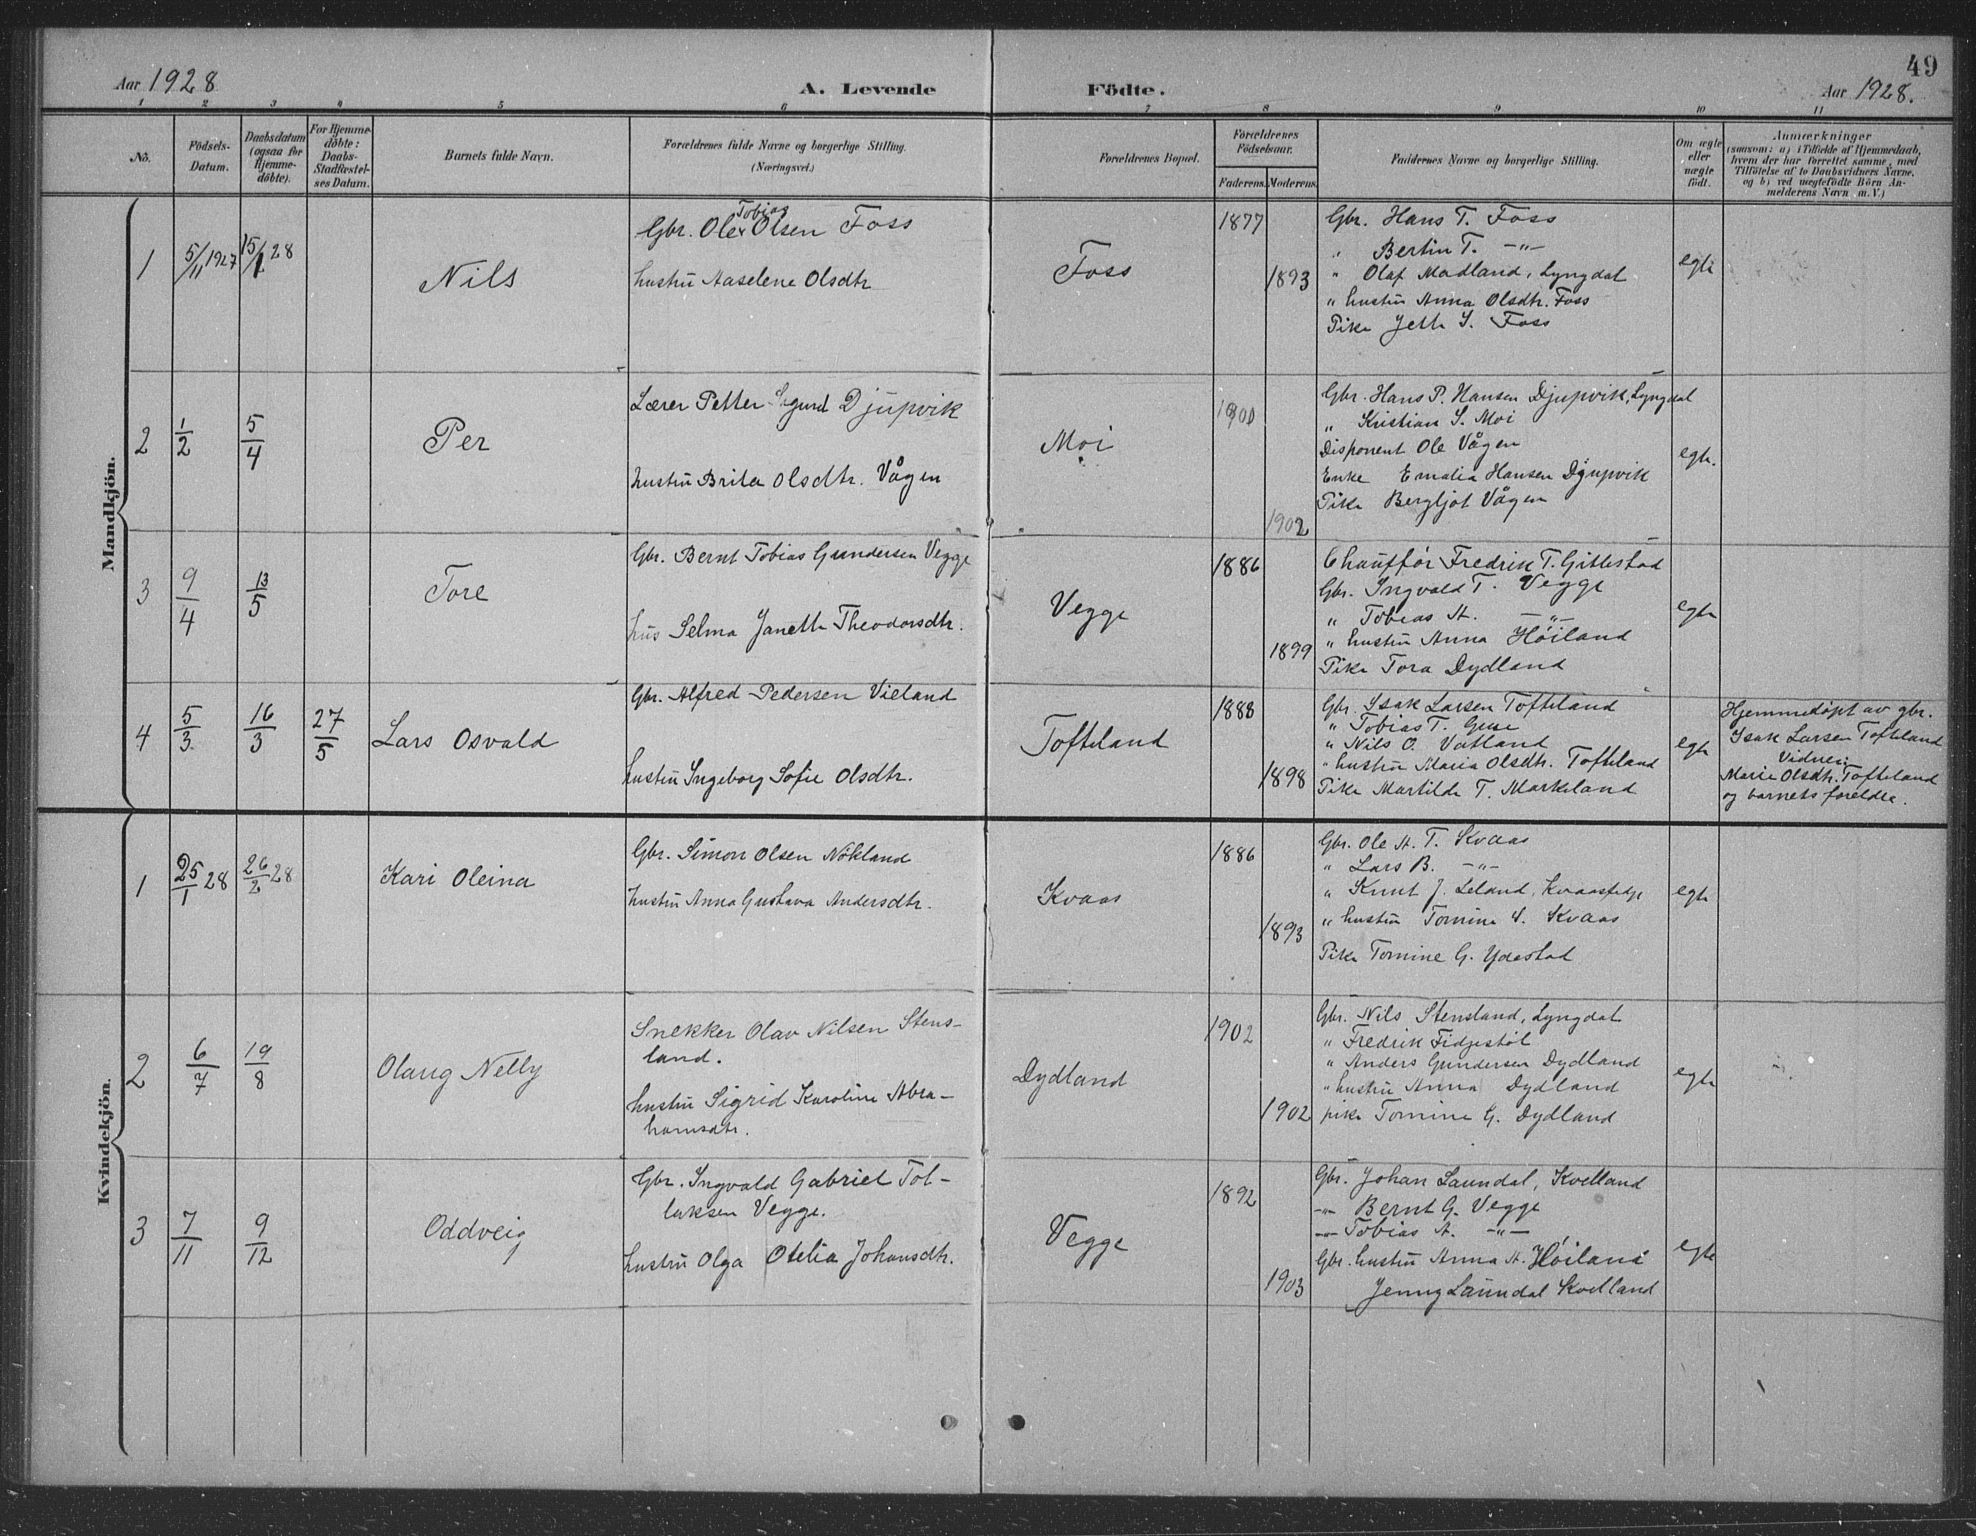 49
Aar 1928 A. Levende Födte. Aar 1928.
1 2 3 4 5 6 7 8 9 10 11
No. Födsels-Datum. Daabsdatum (ogsaa for Hjemme-döbte). For Hjemme-döbte: Daabs-Stadfæstel-ses Datum. Barnets fulde Navn. Forældrenes fulde Navne og borgerlige Stilling. (Næringsvei.) Forældrenes Bopæl. Forældrenes Födselsaar. Faderens. Moderens. Faddernes Navne og borgerlige Stilling. Om ægte eller uægte födt. Anmærkninger (saasom: a) i Tilfælde af Hjemmedaab, hvem der har forrettet samme, med Tilföielse af to Daabsvidners Navne, og b) ved uægtefödte Börn An-melderens Navn m. V.)
Mandkjön.
1 5/11 1927 15/1 28 Nils
Gbr. Ole Tobias Olsen Foss
hustru Aaselene Olsdtr
Foss 1877 1893
Gbr. Hans T. Foss
" Bertin T. -"-
" Olaf Madland, Lyngdal
" hustru Anna Olsdtr. Foss
Pike Jette S. Foss
egte
2 1/2 5/4 Per
Lærer Petter Sigurd Djupvik
hustru Brita Olsdtr. Vågen
Moi 1900 1902
Gbr. Hans P. Hansen Djupvik, Lyngdal
" Kristian S. Moi
Disponent Ole Vågen
Enke Emalia Hansen Djupvik
Pike Bergljot Vågen
egte.
3 9/4 13/5 Tore
Gbr. Bernt Tobias Gundersen Vegge
hus Selma Janette Theodorsdtr.
Vegge 1886 1899
Chauffør Fredrik T. Gitlestad
Gbr. Ingvald T. Vegge
" Tobias A. -"-
" hustru Anna Höiland
Pike Tora Dydland
egte
4 5/3 16/3 27/5 Lars Osvald
Gbr. Alfred Pedersen Vieland
hustru Ingeborg Sofie Olsdtr.
Tofteland 1888 1898
Gbr. Isak Larsen Tofteland
" Tobias T.
" Nils O. Vatland
" hustru Maria Olsdtr. Tofteland
Pike Martilde T. Markeland
egte
Hjemmedøpt av gbr.
Isak Larsen Tofteland
Vidner:
Marie Olsdtr. Tofteland
og barnets foreldre.
Kvindekjön.
1 25/1 28 26/2 28 Kari Oleina
Gbr. Simon Olsen Nökland
hustru Anna Gustava Andersdtr.
Kvaas 1886 1893
Gbr. Ole A. T. Kvaas
" Lars B. -"-
" Knut J. Leland, Kvaasfidje
" hustru Tomine S. Kvaas
Pike Tomine G. Ydestad
egte
2 6/7 19/8 Olaug Nelly
Snekker Olav Nilsen Stens-
land.
hustru Sigrid Karoline Abra-
hamsdtr.
Dydland 1902 1902
Gbr. Nils Stensland, Lyngdal
" Fredrik Fidjestöl
" Anders Gundersen Dydland
" hustru Anna Dydland
pike Tomine G. Dydland
egte
3 7/11 9/12 Oddveig
Gbr. Ingvald Gabriel Tol-
laksen Vegge.
hustru Olga Otelia Johansdtr.
Vegge 1892 1903
Gbr. Johan Laundal, Kvelland
-"- Bernt G. Vegge
-"- Tobias A. -"-
Gbr. hustru Anna A. Höiland
Jenny Laundal Kvelland
egte